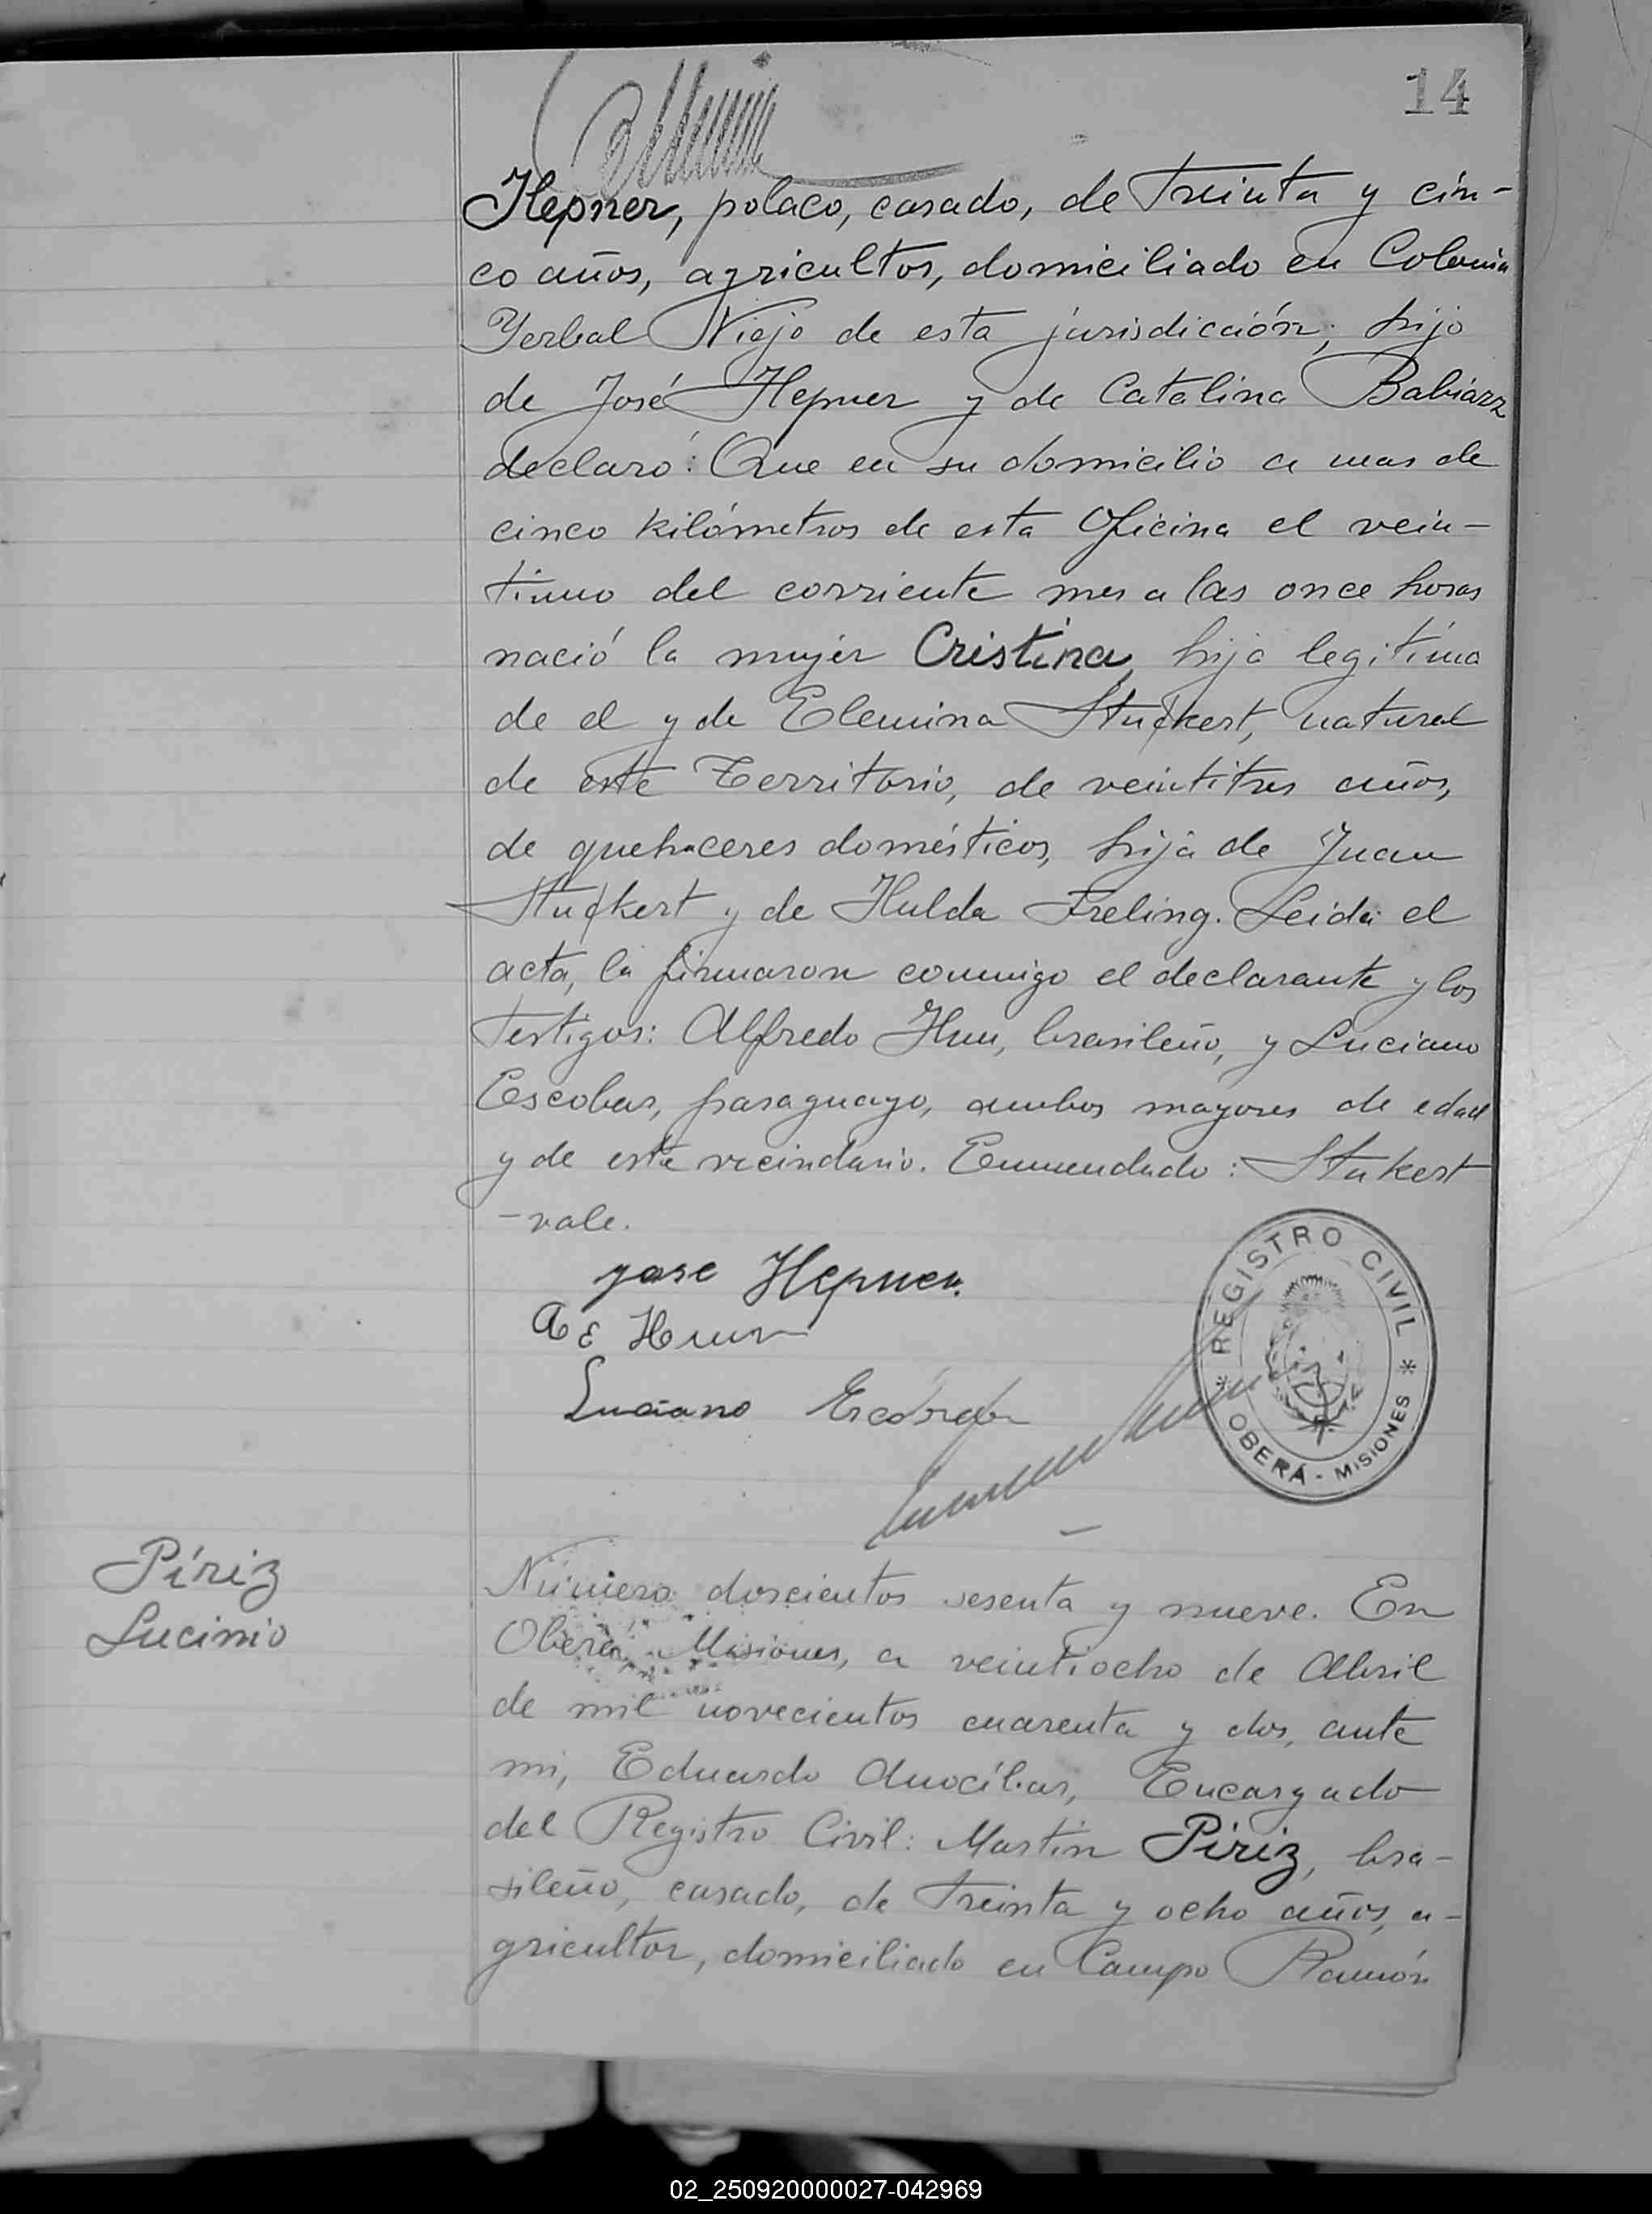 14
Hepner, polaco, casado, de treinta y cin-
co años, agricultor, domiciliado en Colonia
Yerbal Viejo de esta jurisdicción, hijo
de José Hepner y de Catalina Babiarz
declaró: Que en su domicilio a mas de
cinco kilómetros de esta Oficina el vein-
tiuno del corriente mes a las once horas
nació la mujer Cristina, hija legítima
de el y de Elemina Stuckert, natural
de este Territorio, de veintitres años,
de quehaceres domésticos, hija de Juan
Stuckert y de Hulda Freling. Leida el
acta, la firmaron conmigo el declarante y los
testigos: Alfredo Hun, brasileño, y Luciano
Escobar, paraguayo, ambos mayores de edad
y de este vecindario. Enmendado: Stukert
-vale.
jose Hepner.
Luciano Escobar
REGISTRO CIVIL
* OBERÁ - MISIONES *
Píriz
Lucinio
Número doscientos sesenta y nueve. En
Oberá, Misiones, a veintiocho de Abril
de mil novecientos cuarenta y dos, ante
mi, Eduardo Anocíbar, Encargado
del Registro Civil: Martín Píriz, bra-
sileño, casado, de treinta y ocho años, a-
gricultor, domiciliado en Campo Ramón
02_250920000027-042969